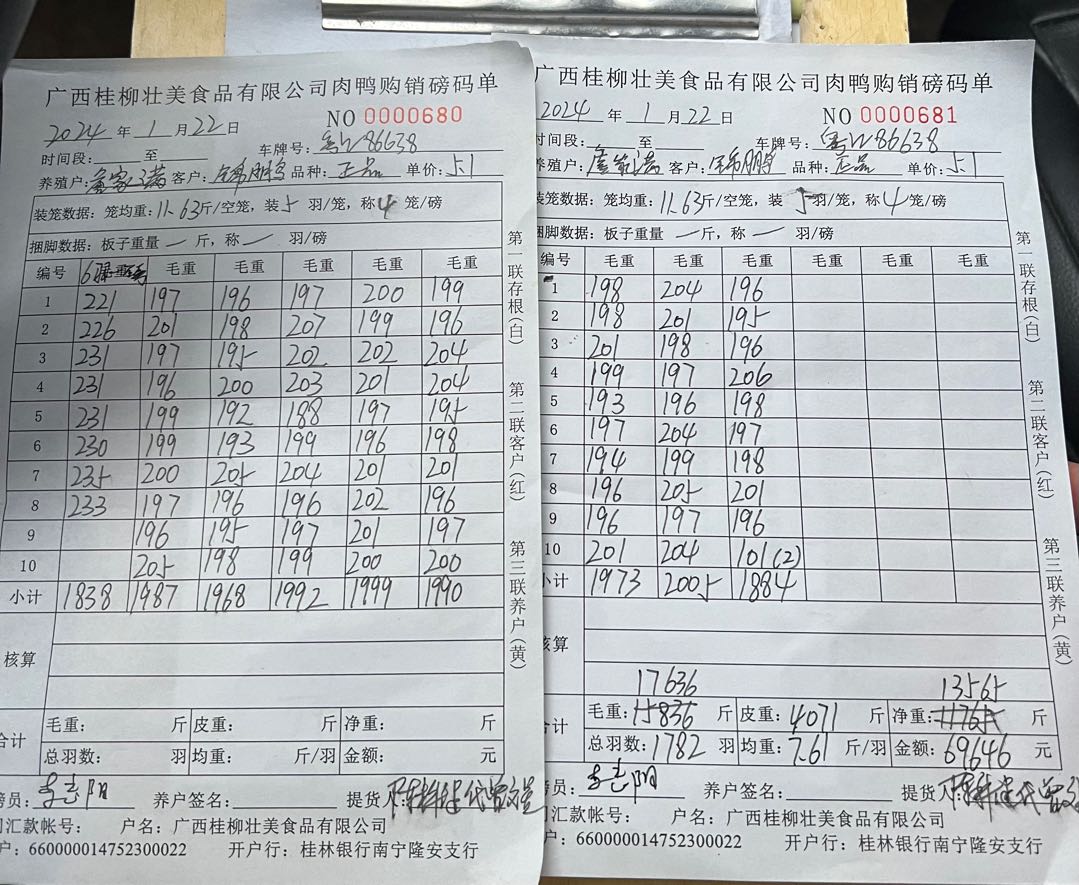 广西桂柳壮美食品有限公司肉鸭购销磅码单
NO 0000680
2024 年 1 月 22 日
时间段: 至 车牌号: 86638
养殖户: 客户: 品种: 正品 单价: 5.1
装笼数据: 笼均重: 11.63 斤/空笼, 装 5 羽/笼, 称 4 笼/磅
捆脚数据: 板子重量 一 斤, 称 一 羽/磅
编号 毛重 毛重 毛重 毛重 毛重
1 221 197 196 197 200 199
2 226 201 198 207 199 196
3 231 197 195 202 202 204
4 231 196 200 203 201 204
5 231 199 192 188 197 195
6 230 199 193 199 196 198
7 235 200 205 204 201 201
8 233 197 196 196 202 196
9 196 195 197 201 197
10 205 198 199 200 200
小计 1838 1987 1968 1992 1999 1990
核算
合计 毛重: 斤 皮重: 斤 净重: 斤
总羽数: 羽 均重: 斤/羽 金额: 元
磅员: 李志阳 养户签名: 提货人:
户名: 广西桂柳壮美食品有限公司
660000014752300022 开户行: 桂林银行南宁隆安支行
第一联存根(白) 第二联客户(红) 第三联养户(黄)
广西桂柳壮美食品有限公司肉鸭购销磅码单
NO 0000681
2024 年 1 月 22 日
时间段: 至 车牌号: 86638
养殖户: 客户: 品种: 正品 单价: 5.1
装笼数据: 笼均重: 11.63 斤/空笼, 装 5 羽/笼, 称 4 笼/磅
捆脚数据: 板子重量 一 斤, 称 一 羽/磅
编号 毛重 毛重 毛重 毛重 毛重 毛重
1 198 204 196
2 198 201 195
3 201 198 196
4 199 197 206
5 193 196 198
6 197 204 197
7 194 199 198
8 196 205 201
9 196 197 196
10 201 204 101(2)
小计 1973 2005 1884
核算
17636 13565
合计 毛重: 15836 斤 皮重: 4071 斤 净重: 11765 斤
总羽数: 1782 羽 均重: 7.61 斤/羽 金额: 69646 元
磅员: 李志阳 养户签名: 提货人:
汇款帐号: 户名: 广西桂柳壮美食品有限公司
户: 660000014752300022 开户行: 桂林银行南宁隆安支行
第一联存根(白) 第二联客户(红) 第三联养户(黄)